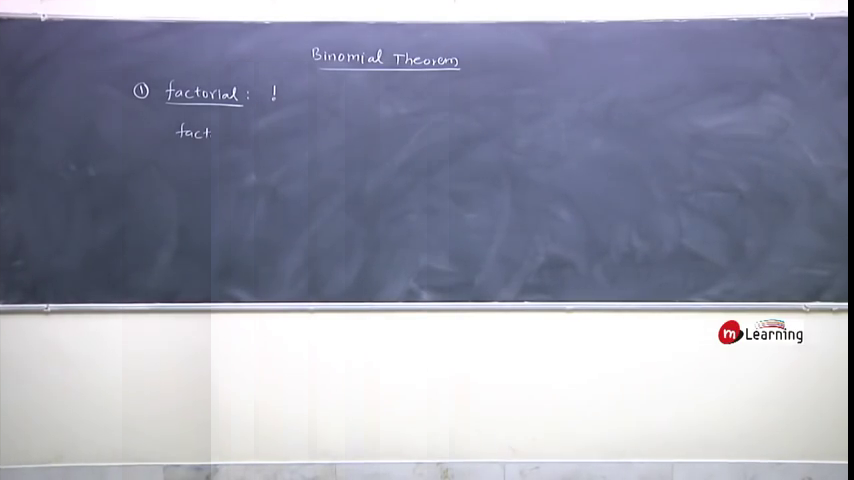 Binomial Theorem
① factorial : !
fact
m Learning